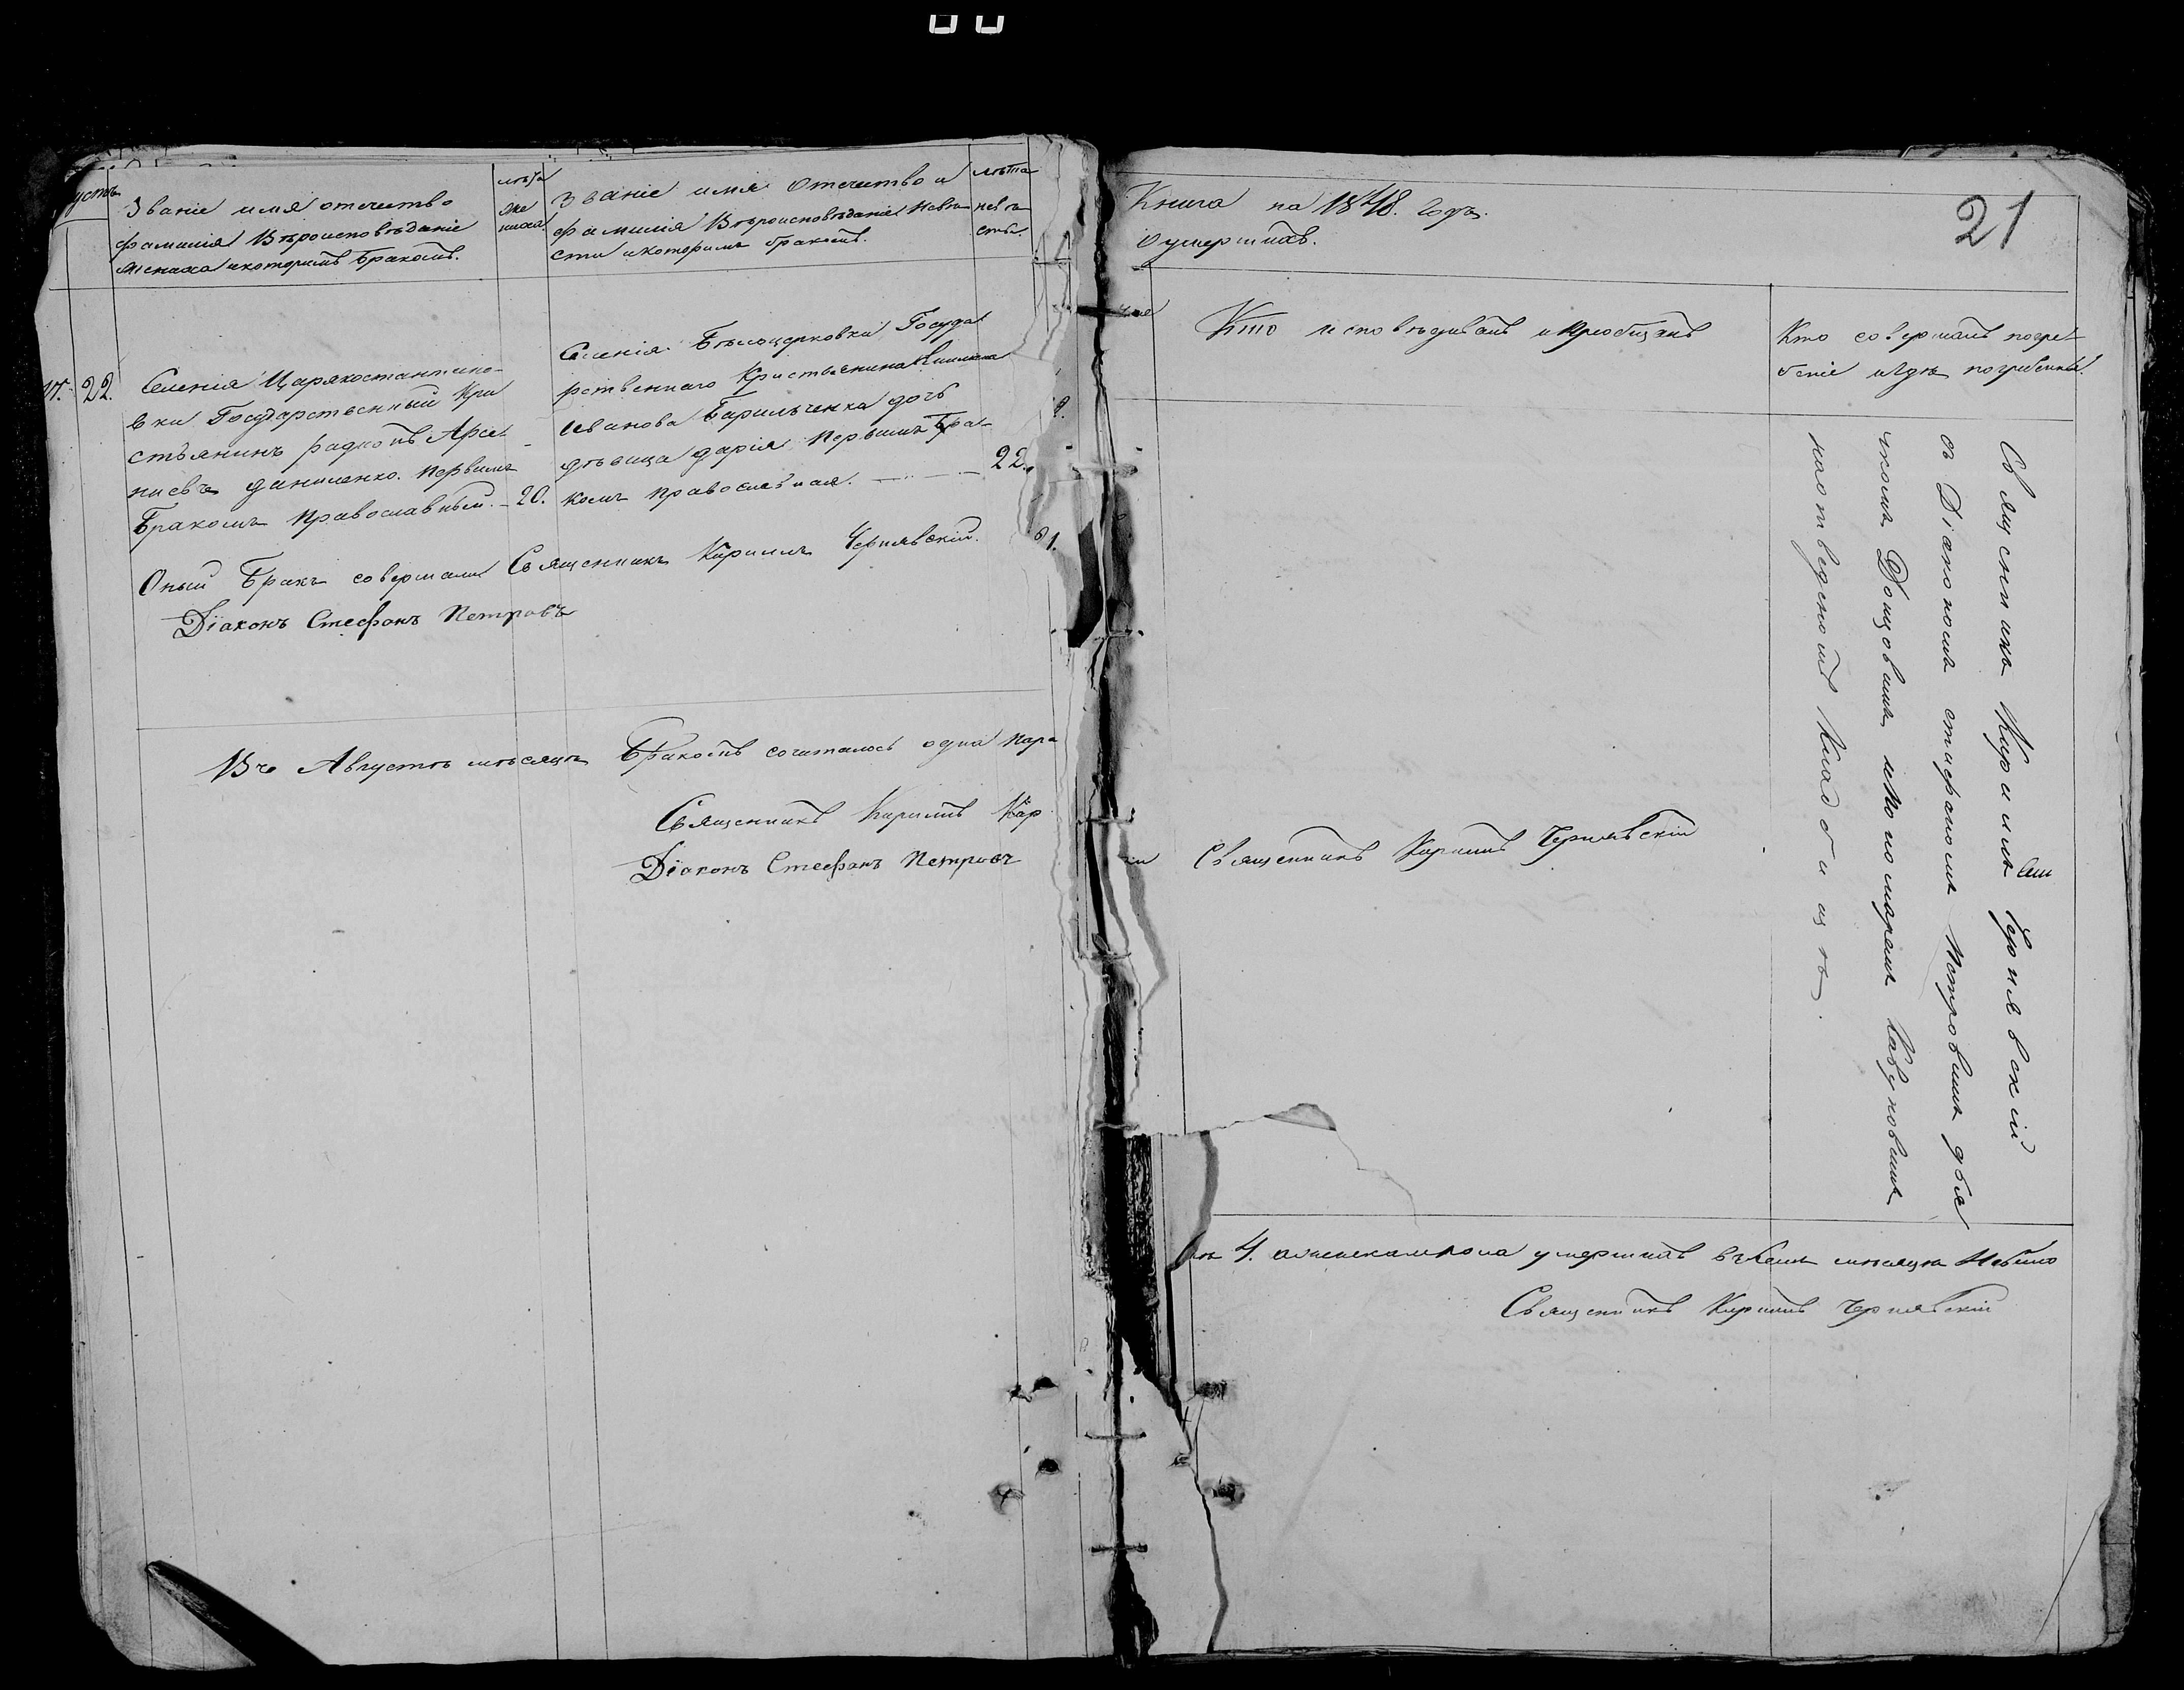 устъ
Званіе имя отечество
фамилія Вѣроисповѣданіе
жениха икоторимъ бракомъ.
лѣта
же
ниха
Званіе имя отечество и
фамилія Вѣроисповѣданіе Невѣ
сти икоторимъ бракомъ.
лѣта
невѣ
сты.
22.
Селенія Царякостантино-
вки Государственный Кри
стьянинъ радионъ Арсе
ниевъ даниленко. первимъ
Бракомъ православный. 20.
Селенія Бѣлоцерковки Госуда
рственнаго Кристьянина
Иванова Гарильченка дочь
дѣвица дария первимъ Бра-
комъ православная. 22.
Оный Бракъ совершали Священникъ Кириллъ Чернявскій.
Діаконъ Стефанъ Петровъ
Въ Августѣ мѣсяцѣ Бракомъ сочиталось одна пара
Священникъ Кириллъ
Діаконъ Стефанъ Петровъ
Книга на 1848. Годъ.
оумершихъ.
21
Кто исповѣдивалъ иприобщалъ
Кто совершалъ погре
беніе игдѣ погребенны.
Священникъ Кириллъ Чернявскій
съ Діакономъ стефаномъ Петровимъ дья
чкомъ Донцовимъ ипономаремъ Кавуновимъ
наотведеномъ Кладбищѣ.
Священникъ Кириллъ Чернявскій
4. аженскаго пола умершихъ всемъ мѣсяцѣ Небыло
Священникъ Кириллъ Чернявскій